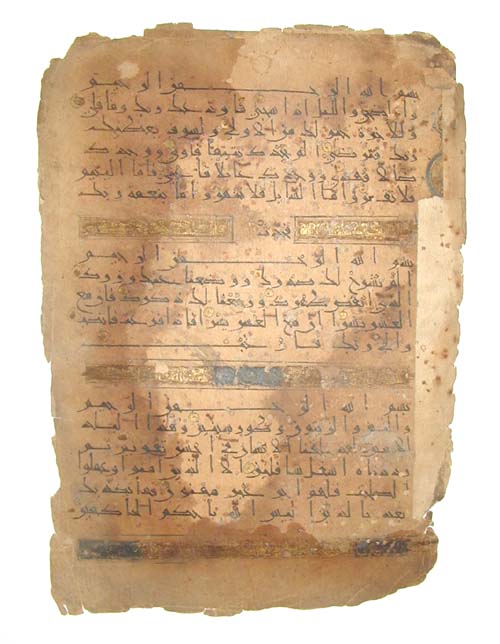 بسم الله الرحمن الرحيم
والضحى والليل اذا سجى ما ودعك ربك وما قلى
وللاخرة خير لك من الاولى ولسوف يعطيك
ربك فترضى الم يجدك يتيما فاوى ووجدك
ضالا فهدى ووجدك عائلا فاغنى فاما اليتيم
فلا تقهر واما السايل فلا تنهر واما بنعمة ربك
فحدث
بسم الله الرحمن الرحيم
الم نشرح لك صدرك ووضعنا عنك وزرك
الذي انقض ظهرك ورفعنا لك ذكرك فان مع
العسر يسرا ان مع العسر يسرا فاذا فرغت فانصب
والى ربك فارغب
بسم الله الرحمن الرحيم
والتين والزيتون وطور سينين وهذا البلد
الامين لقد خلقنا الانسان في احسن تقويم ثم
رددناه اسفل سافلين الا الذين امنوا وعملوا
الصلحت فلهم اجر غير ممنون فما يكذبك
بعد بالدين اليس الله باحكم الحاكمين